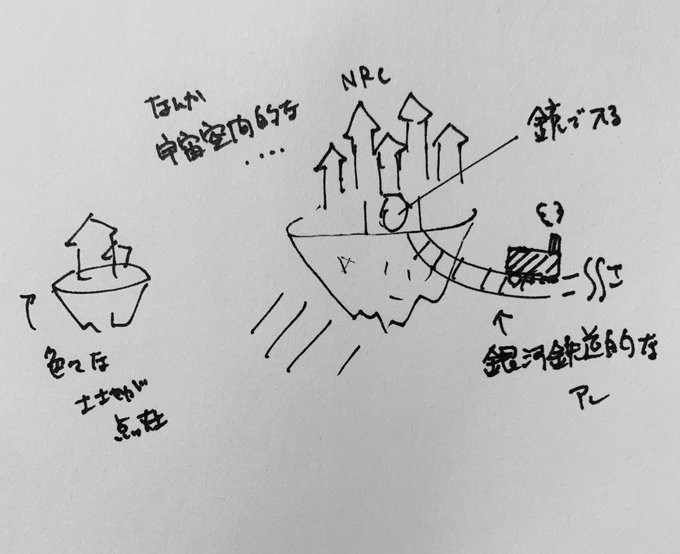 なんか
宇宙空間的な
‥‥
NRC
鏡でくる
色々な
土地が
点在
銀河鉄道的な
アレ